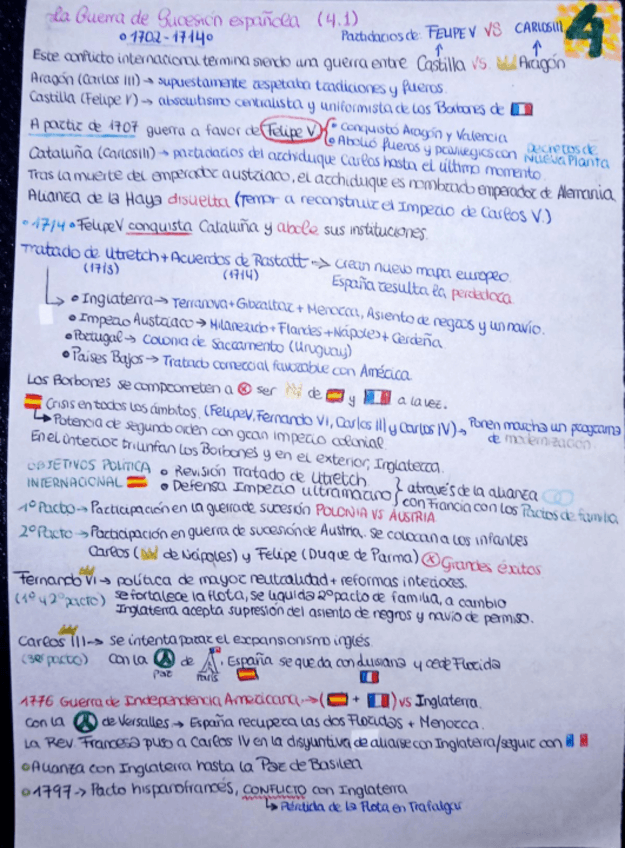 La Guerra de Sucesión española (4.1)
4
1702-1714
Partidarios de: FELIPE V VS CARLOS III
Este conflicto internacional termina siendo una guerra entre Castilla VS. Aragón
Aragón (Carlos III) → supuestamente respetaba tradiciones y fueros.
Castilla (Felipe V) → absolutismo centralista y uniformista de los Borbones de
A partir de 1707 guerra a favor de Felipe V
• Conquistó Aragón y Valencia
• Abolió fueros y privilegios con Decretos de Nueva Planta
Cataluña (Carlos III) → partidarios del archiduque Carlos hasta el último momento.
Tras la muerte del emperador austriaco, el archiduque es nombrado emperador de Alemania
Alianza de la Haya disuelta (Temor a reconstruir el Imperio de Carlos V.)
• 1714 • Felipe V conquista Cataluña y abole sus instituciones.
Tratado de Utretch + Acuerdos de Rastatt → Crean nuevo mapa europeo
(1713) (1714) España resulta la perdedora
• Inglaterra → Terranova + Gibraltar + Menorca, Asiento de negros y un navío.
• Imperio Austriaco → Milanesado + Flandes + Nápoles + Cerdeña
• Portugal → Colonia de Sacramento (Uruguay)
• Países Bajos → Tratado comercial favorable con América
Los Borbones se comprometen a ser de y a la vez.
Crisis en todos los ámbitos. (Felipe V, Fernando VI, Carlos III y Carlos IV) → Ponen marcha un programa de modernización.
↳ Potencia de segundo orden con gran imperio colonial
En el interior triunfan los Borbones y en el exterior, Inglaterra.
OBJETIVOS POLÍTICA INTERNACIONAL
• Revisión Tratado de Utretch
• Defensa Imperio ultramarino
a través de la alianza con Francia con los Pactos de familia
1º Pacto → Participación en la guerra de sucesión POLONIA VS AUSTRIA
2º Pacto → Participación en guerra de sucesión de Austria. se colocan a los infantes
Carlos ( de Nápoles) y Felipe (Duque de Parma) Grandes éxitos
Fernando VI → política de mayor neutralidad + reformas interiores.
(1º y 2º pacto) se fortalece la flota, se liquida 2º pacto de familia, a cambio
Inglaterra acepta supresión del asiento de negros y navío de permiso.
Carlos III → se intenta parar el expansionismo inglés
(3er pacto) Con la de . España se queda con Luisiana y cede Florida
Paz París
1776 Guerra de Independencia Americana → ( + ) VS Inglaterra.
Con la de Versalles → España recupera las dos Floridas + Menorca.
La Rev. Francesa puso a Carlos IV en la disyuntiva de aliarse con Inglaterra/seguir con
• Alianza con Inglaterra hasta la Paz de Basilea
• 1797 → Pacto hispanofrancés, CONFLICTO con Inglaterra
↳ Pérdida de la flota en Trafalgar